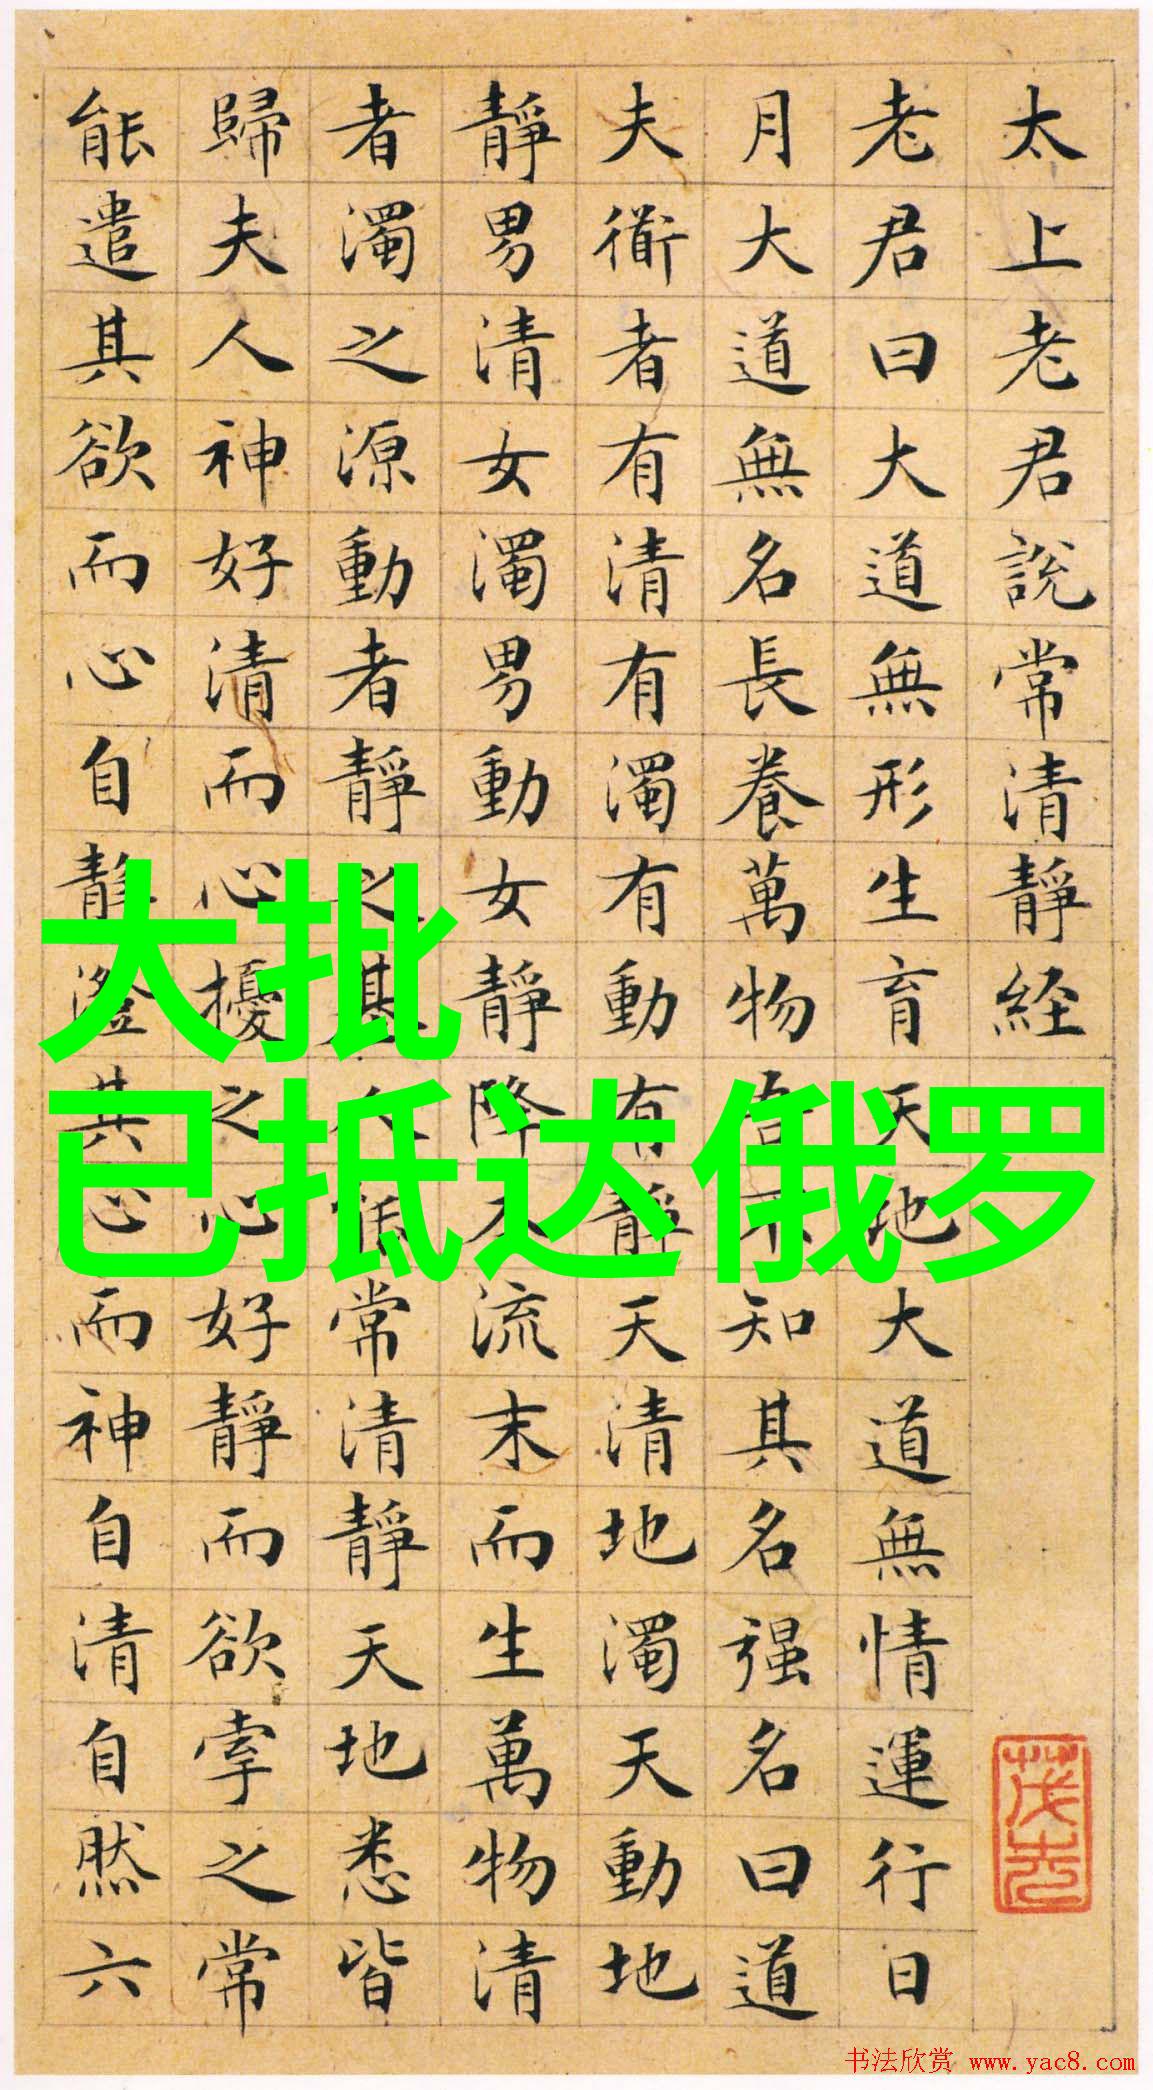 太上老君說常清靜経
老君曰大道無形生育天地大道無情運行日
月大道無名長養萬物吾不知其名强名曰道
夫衜者有清有濁有動有靜天清地濁天動地
靜男清女濁男動女靜降本流末而生萬物清
者濁之源動者靜之基人能常清靜天地悉皆
歸夫人神好清而心擾之心好靜而欲牽之常
能遣其欲而心自靜澄其心而神自清自然六
大批
已抵达俄罗
书法欣赏 www.yac8.com